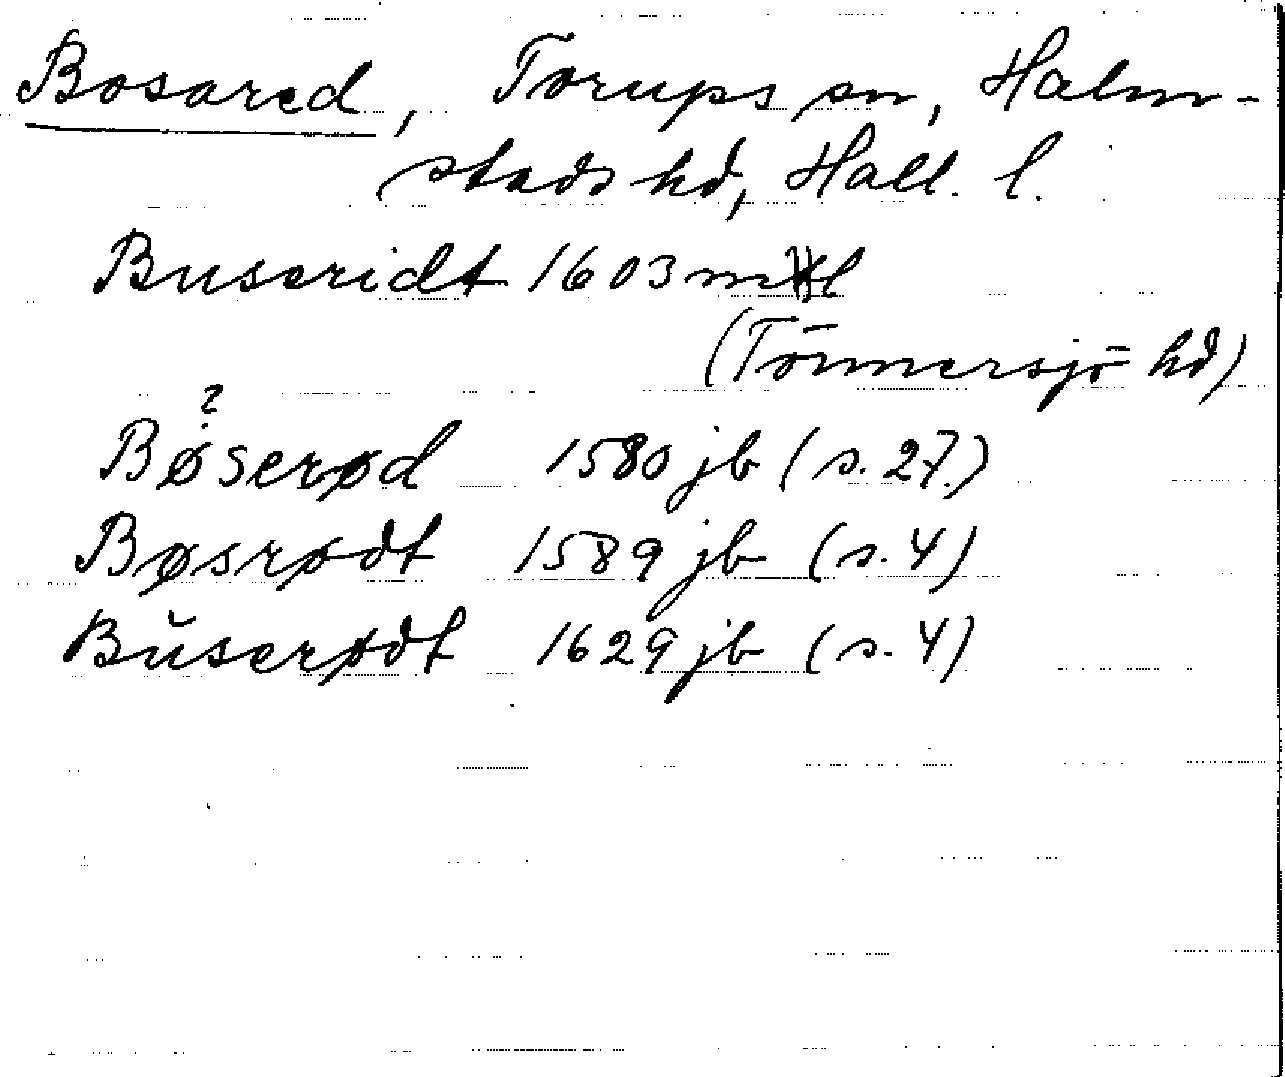 Bosared, Torups sn, Halm-
stads hd, Hall. l.
Buseridt 1603 mtl
(Tönnersjö hd)
?
Bøserød 1580 jb (s. 27.)
Bøsrødt 1589 jb (s. 4)
Bŭserødt 1629 jb (s. 4)